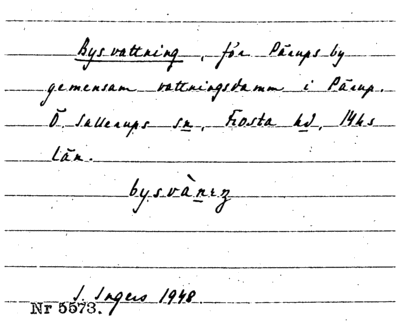 Bysvattning, för Pärups by
gemensam vattningsdamm i Pärup.
Ö. Sallerups sn, Frosta hd, Mhs
län.
bysvànɪŋ
I. Ingers 1948.
Nr 5573.